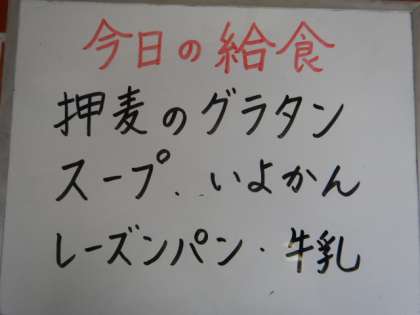 今日の給食
押麦のグラタン
スープ．いよかん
レーズンパン・牛乳